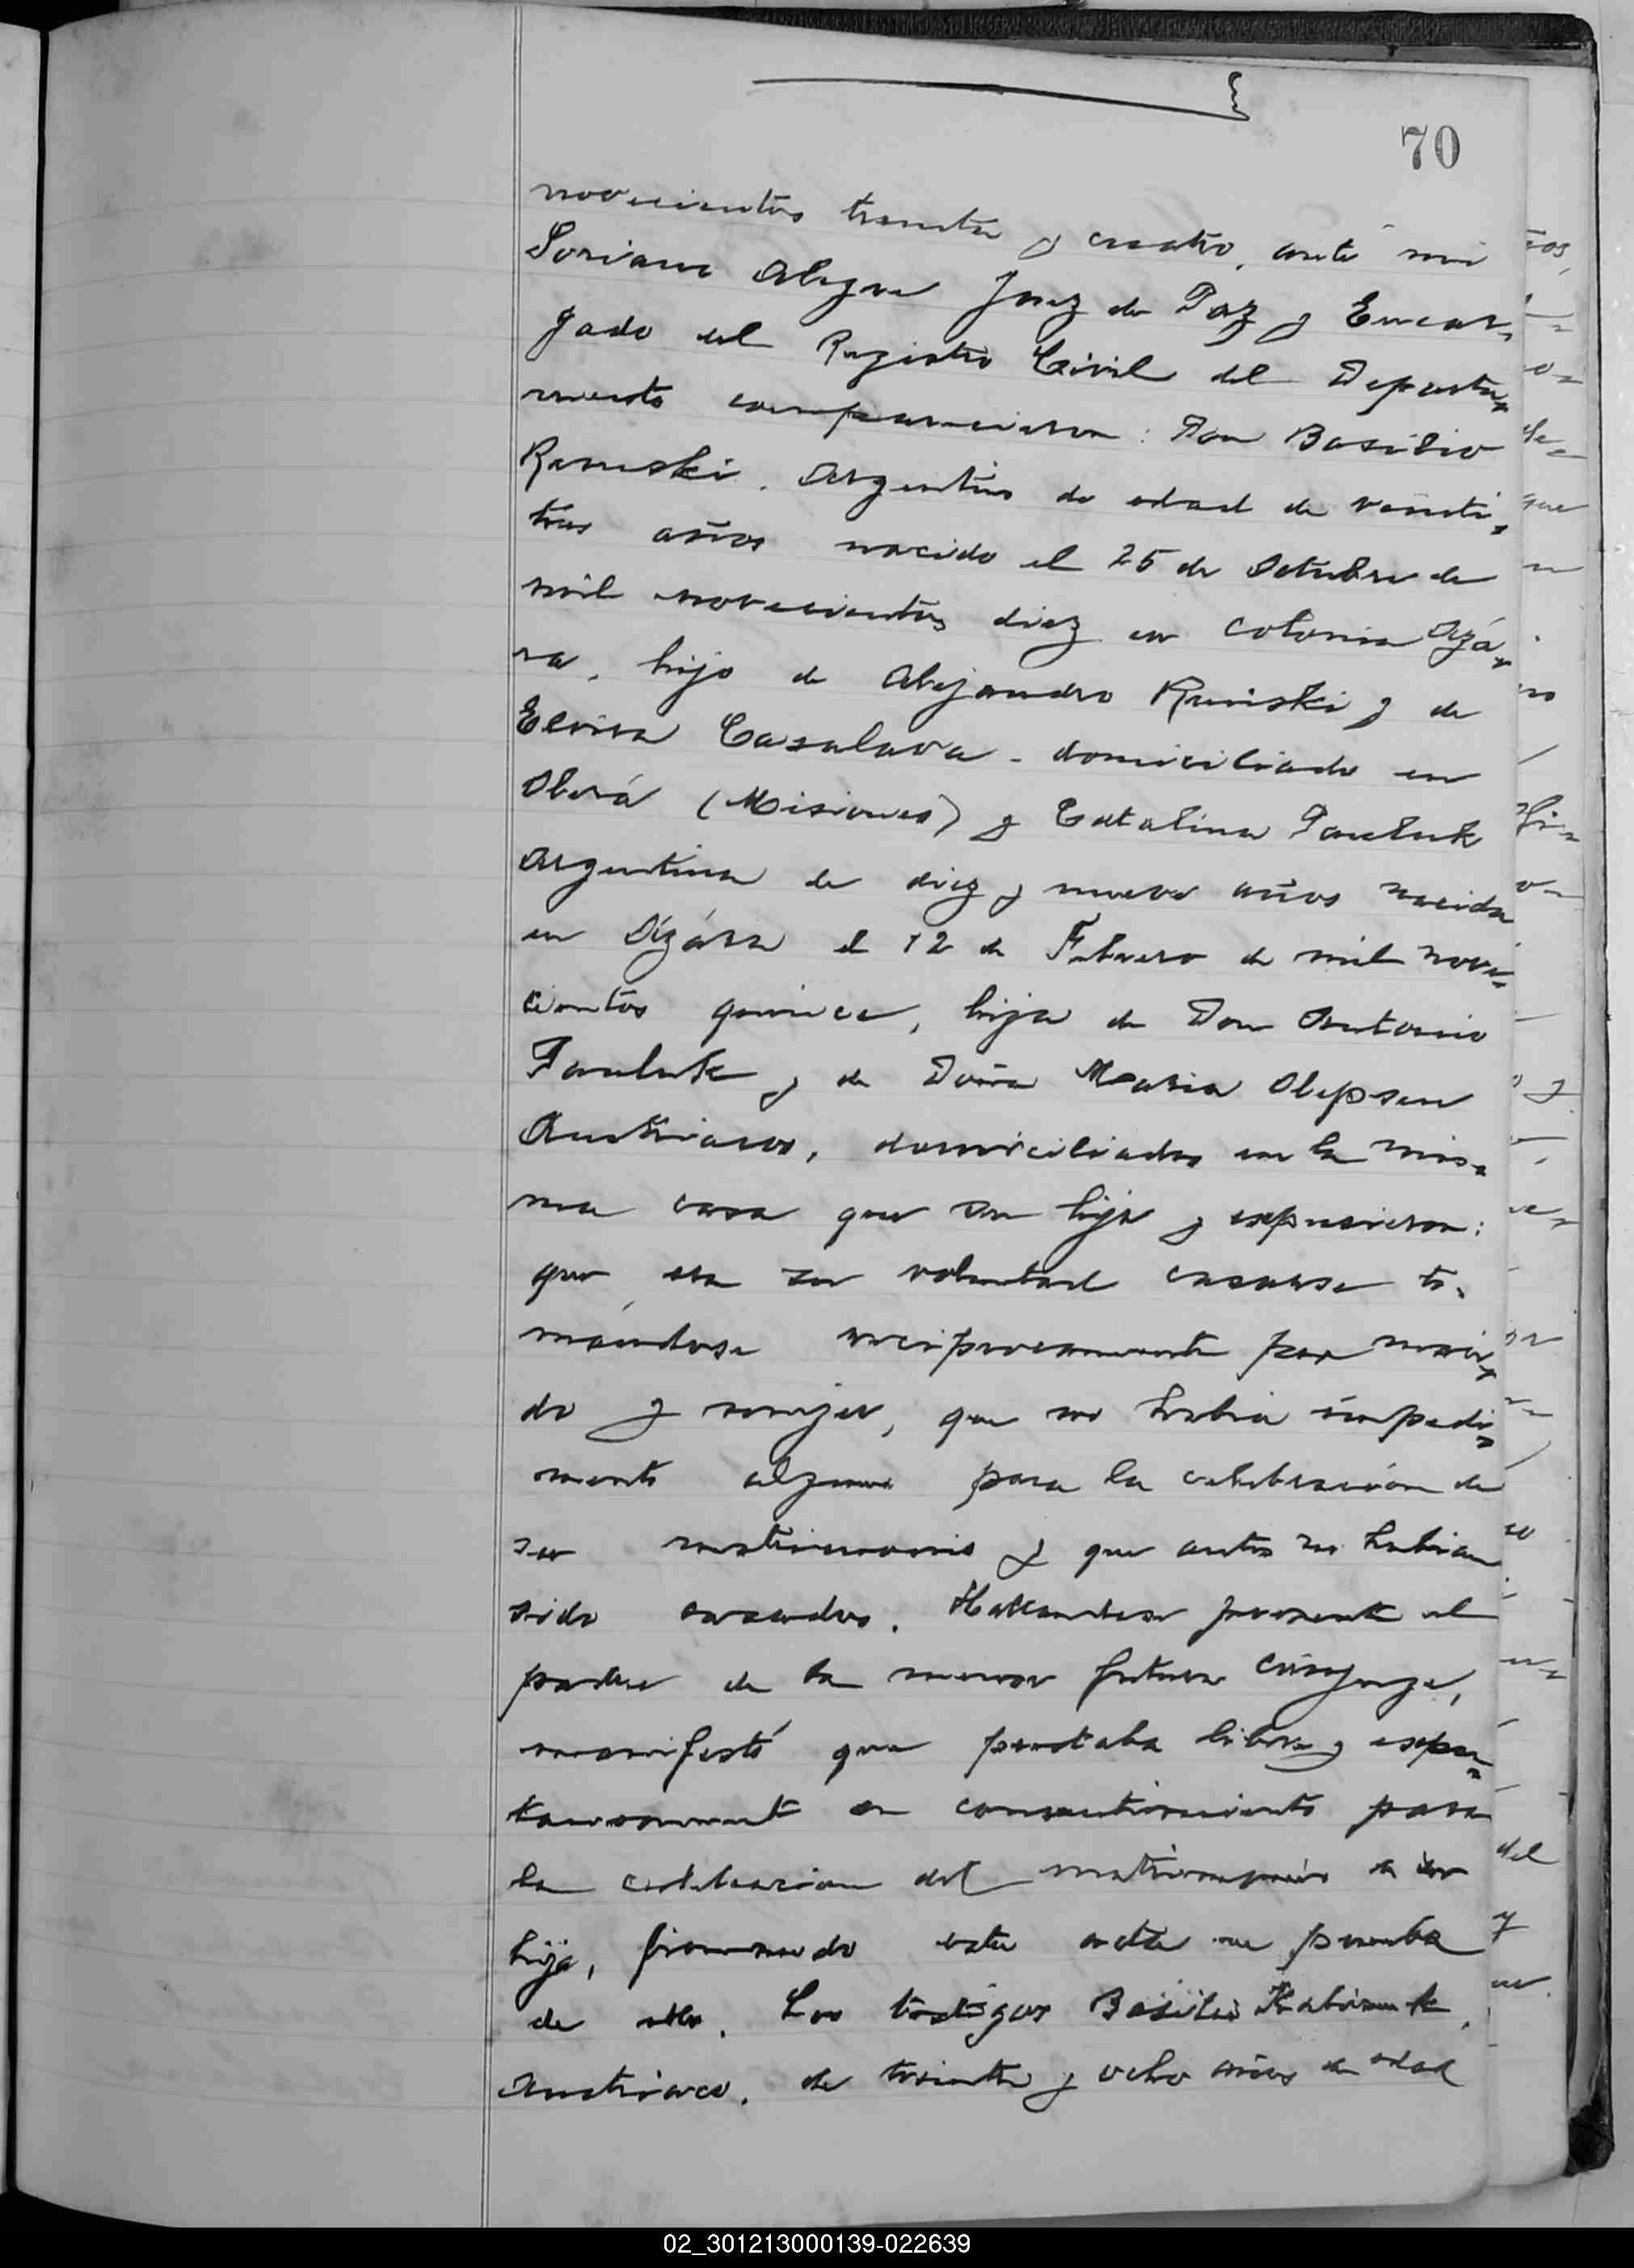 70
novecientos treinta y cuatro, ante mi
Soriano Alegre Juez de Paz y Encar=
gado del Registro Civil del Departa=
mento comparecieron: Don Basilio
Remeski. Argentino de edad de veinti=
tres años nacido el 25 de Octubre de
mil novecientos diez en colonia Azá=
ra, hijo de Alejandro Runiski y de
Elvira Casalava - domiciliado en
Oberá (Misiones) y Catalina Pauluk
Argentina de diez y nueve años nacida
en Azára el 12 de Febrero de mil nove=
cientos quince, hija de Don Antonio
Pauluk y de Doña Maria Olepsen
Austriacos, domiciliados en la mis=
ma casa que su hija y expusieron:
que era su voluntad casarse to=
mándose reciprocamente por mari=
do y mujer, que no habia impedi=
mento alguno para la celebración de
su matrimonio y que antes no habian
sido casados. Hallandose presente el
padre de la menor futura cónyuge,
manifestó que prestaba libre y espon=
taneamente su consentimiento para
la celebracion del matrimonio de su
hija, firmando esta acta en prueba
de ello. Los testigos Basilio
Austriaco, de treinta y ocho años de edad
02_301213000139-022639